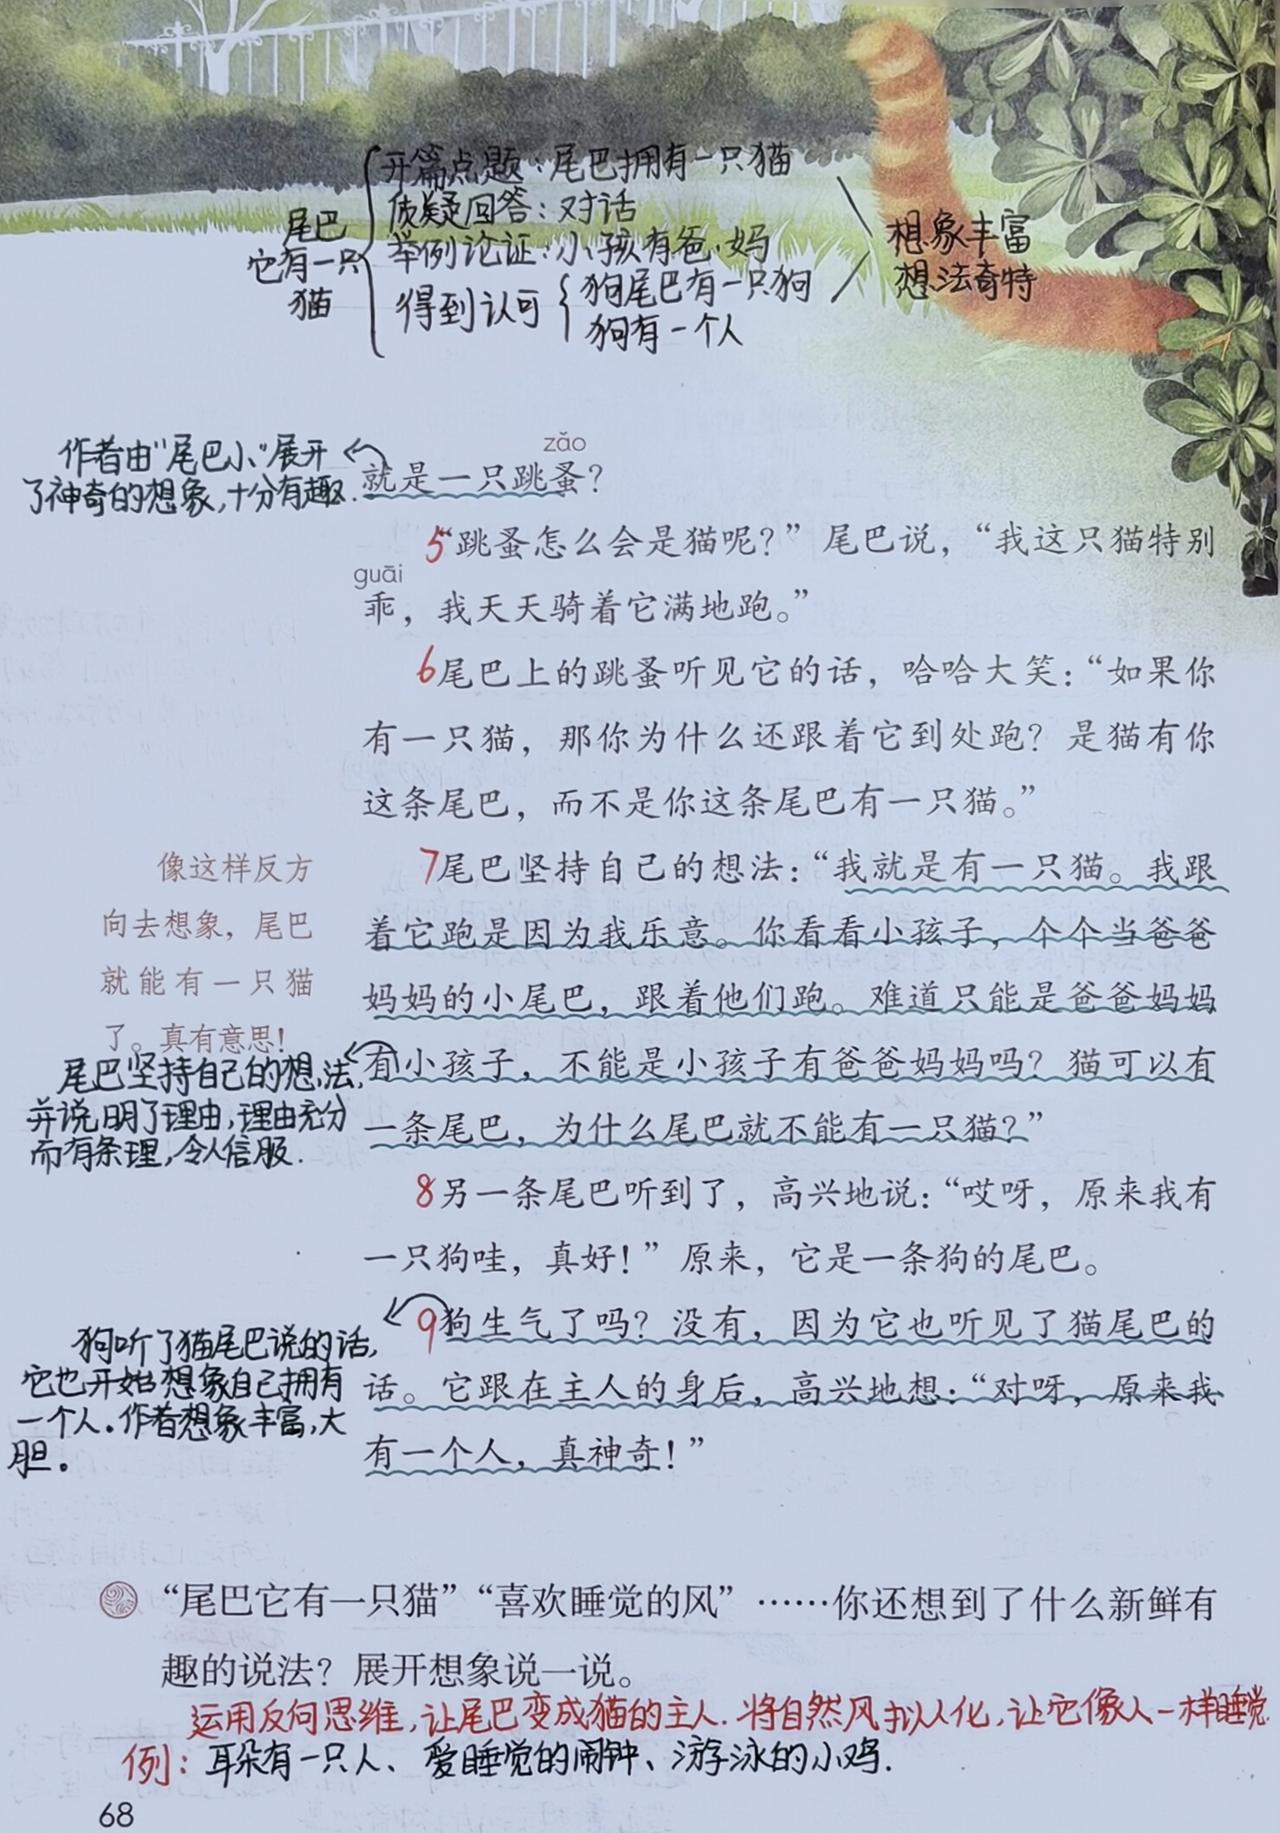 开篇点题：尾巴拥有一只猫
质疑回答：对话
举例论证：小孩有爸·妈
得到认可
狗尾巴有一只狗
狗有一个人
尾巴
它有一只
猫
想象丰富
想法奇特
作者由“尾巴小”展开
了神奇的想象，十分有趣.
zǎo
就是一只跳蚤？
5“跳蚤怎么会是猫呢？”尾巴说，“我这只猫特别
guāi
乖，我天天骑着它满地跑。”
6尾巴上的跳蚤听见它的话，哈哈大笑：“如果你
有一只猫，那你为什么还跟着它到处跑？是猫有你
这条尾巴，而不是你这条尾巴有一只猫。”
7尾巴坚持自己的想法：“我就是有一只猫。我跟
着它跑是因为我乐意。你看看小孩子，个个当爸爸
妈妈的小尾巴，跟着他们跑。难道只能是爸爸妈妈
有小孩子，不能是小孩子有爸爸妈妈吗？猫可以有
一条尾巴，为什么尾巴就不能有一只猫？”
像这样反方
向去想象，尾巴
就能有一只猫
了。真有意思！
尾巴坚持自己的想法，
并说明了理由，理由充分
而有条理，令人信服.
8另一条尾巴听到了，高兴地说：“哎呀，原来我有
一只狗哇，真好！”原来，它是一条狗的尾巴。
9狗生气了吗？没有，因为它也听见了猫尾巴的
话。它跟在主人的身后，高兴地想：“对呀，原来我
有一个人，真神奇！”
狗听了猫尾巴说的话，
它也开始想象自己拥有
一个人.作者想象丰富，大
胆。
“尾巴它有一只猫”“喜欢睡觉的风”……你还想到了什么新鲜有
趣的说法？展开想象说一说。
运用反向思维，让尾巴变成猫的主人.将自然风拟人化，让它像人一样睡觉.
例：耳朵有一只人、爱睡觉的闹钟、游泳的小鸡.
68